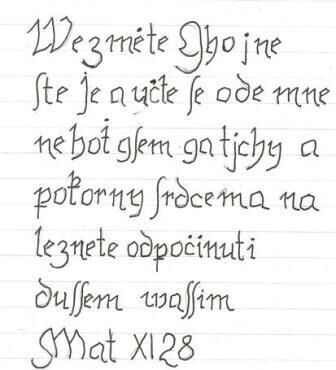 Wezměte Gho j na
ſte je a učte ſe ode mne
neboť gſem ga tjchy a
pokorny ſrdcem a na
leznete odpočinuti
duſſem waſſim
SMat XI 28